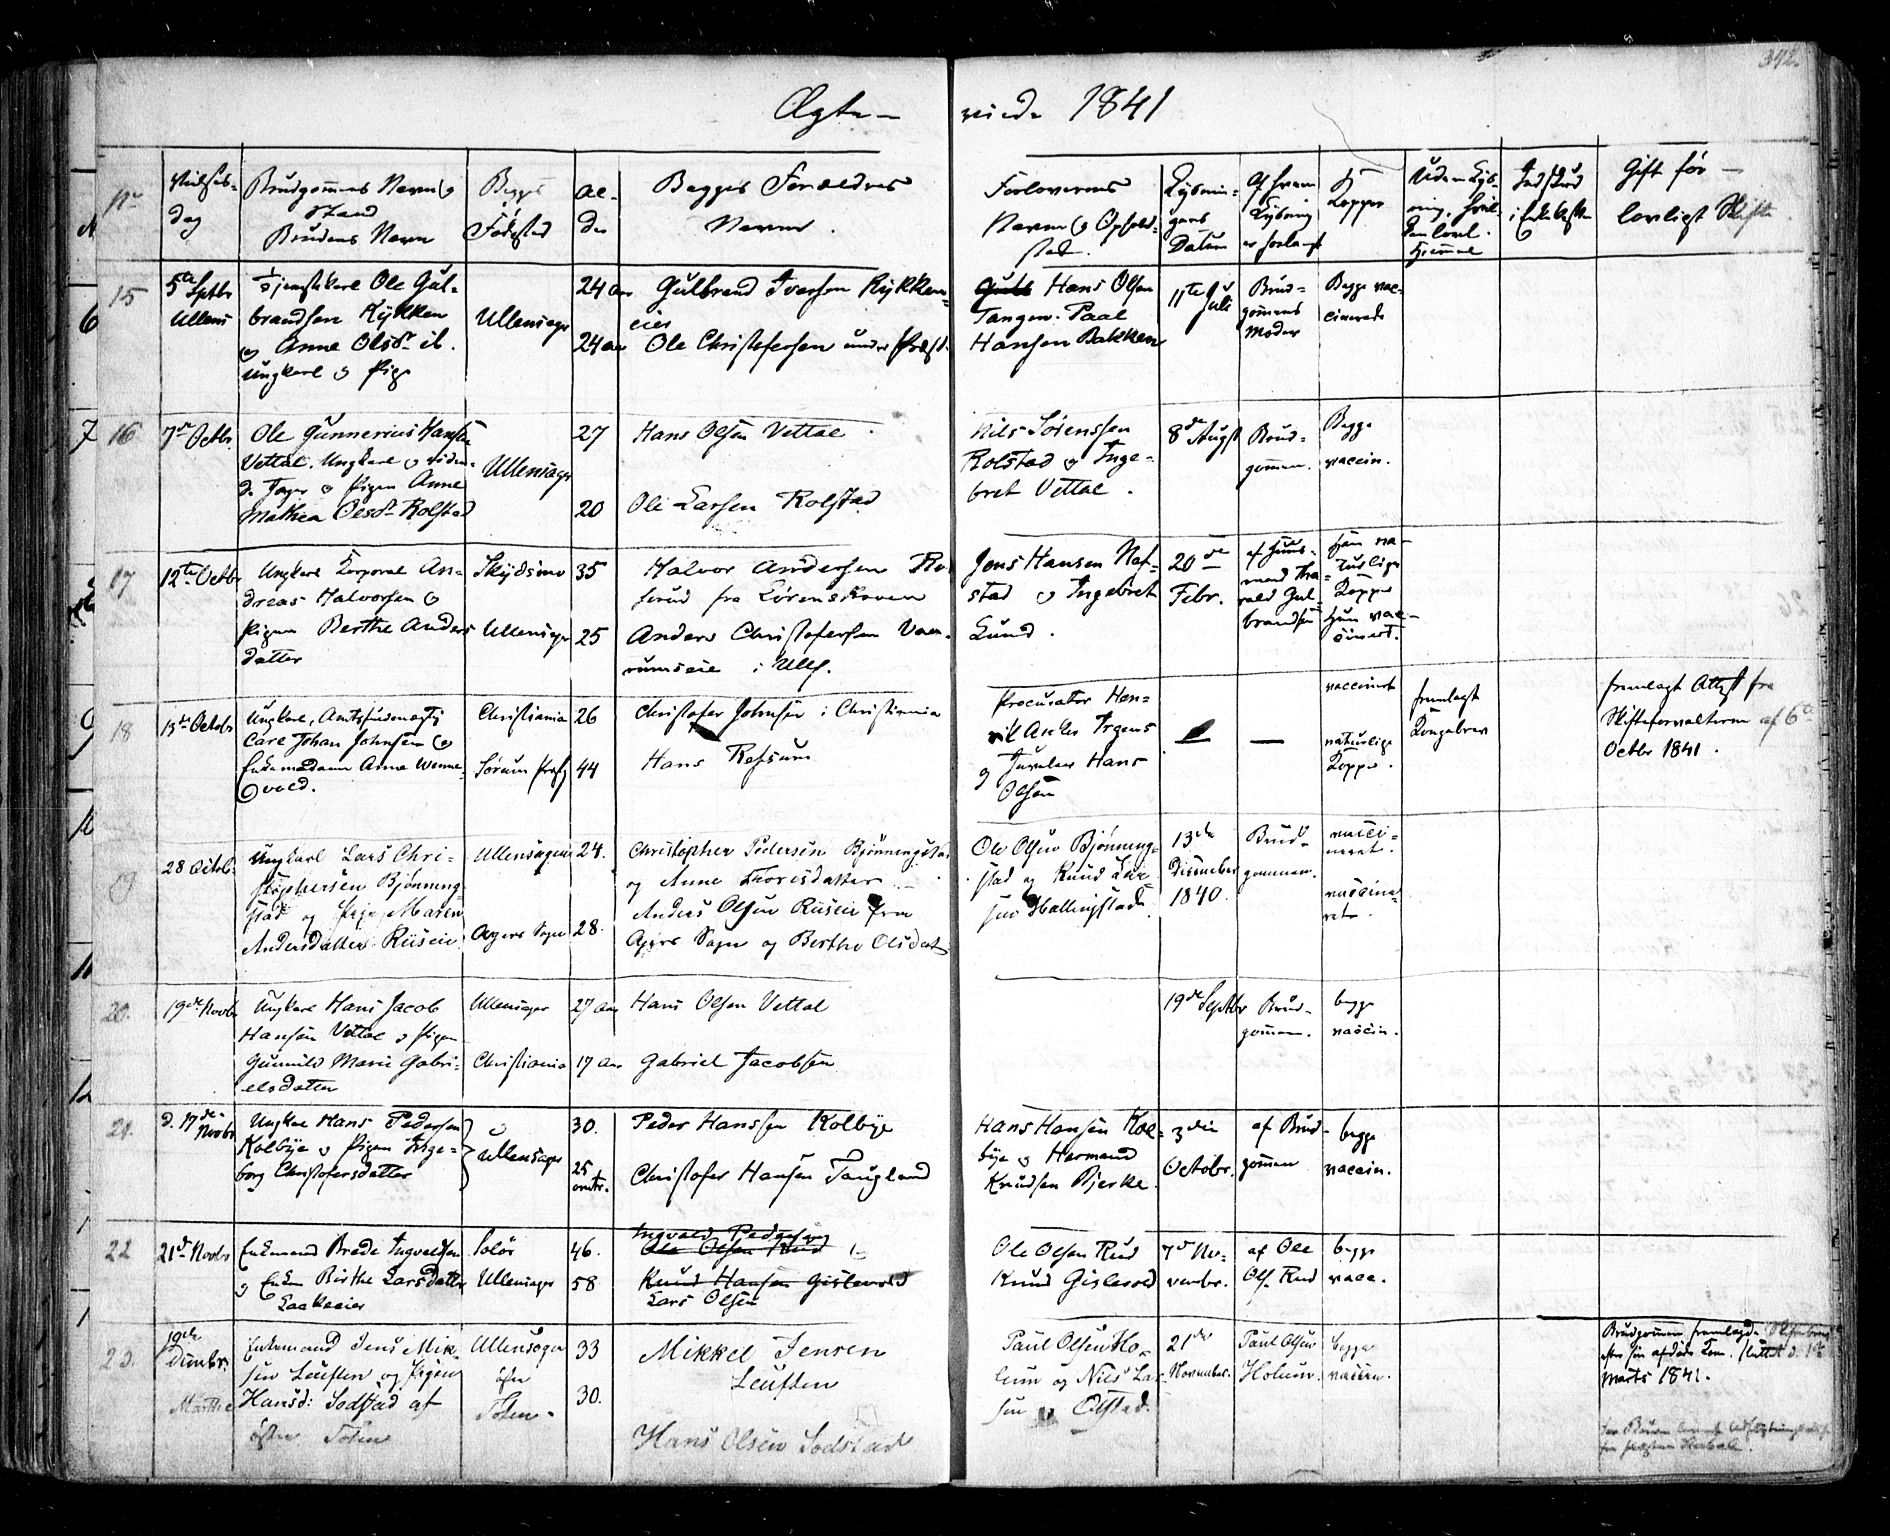 342.
Ægte- viede 1841
No
Vielses-
dag
Brudgommens Navn og
Stand
Brudens Navn
Begges
Fødested
Al-
der
Begges Forældres
Navne.
Forlovernes
Navn og Opholds-
sted.
Lysnin-
gens
Datum
Af hvem
Lysning
er forlangt
Kopper
Uden Lys-
ning, hvil-
ken lovl.
Hjemmel
Indskud
i Enkekassen
Gift før –
lovligt Skifte
15
5te Septbr
Ullens
Tjenestekarl Ole Gul-
brandsen Kykken
og Anne Olsdr ib.
Ungkarl og Pige
Ullensager
24 aar
24 aar
Gulbrand Iversen Kykken-
eier
Ole Christofersen under Præst.
Gulb Hans Olsen
Tangen. Paal
Hansen Bakken
11te Juli
Brud-
gommens
Moder
Begge vac-
cinerede
16
7de Octbr
Ole Gunnerius Hansen
Vettal. Ungkarl og
Jæger og Pigen Anne
Mathea Olsdr Rolstad
Ullensager
27
20
Hans Olsen Vettal
Ole Larsen Rolstad
Nils Sørenssen
Rolstad og Inge-
bret Vettal.
8de Augst
Brud-
gommen.
Begge
vaccin.
17
12te Octbr
Ungkarl Korporal An-
dreas Halvorsen og
Pigen Berthe Anders
datter
Skydsmo
Ullensager
35
25
Halvor Andersen
fra Lørenskoven
Anders Christofersen
i Ulls.
Jens Hansen Naf-
stad og Ingebret
Lund.
20de
Febr.
af Huus-
mand
Gul-
brandsen
Han na-
turlige
Kopper
Hun vac-
cineret.
18
15de Octobr
Ungkarl, Amtsfuldmægtig
Carl Johan Johnsen og
Enkemadame Anna Wenne-
vold.
Christiania
Sørum Præstg
26
44
Christofer Johnsen i Christiania
Hans Refsum
Procurator Hen-
rik Anker Irgens
og Juveleer Hans
Olsen
—
—
vaccineret
naturlige
Kopper.
fremlagt
Kongebrev
fremlagt Attest fra
Skifteforvalteren af 6te
Octbr 1841.
19
28 Octob:
Ungkarl Lars Chri-
stophersen Bjønning-
stad og Pige Maren
Andersdatter Riiseie
Ullensager
Agers Sogn
24.
28.
Christopher Pedersen Bjønningstad
og Anne Thoresdatter
Anders Olsen Riiseie fra
Agers Sogn og Berthe Olsdat
Ole Olsen Bjønning-
stad og Knud Lar
sen Hallingstad.
13de
December
1840.
Brud-
gommen.
vacci-
neret.
vaccine-
ret.
20.
19de Novbr
Ungkarl Hans Jacob
Hansen Vettal og Pigen
Gunnild Marie Gabri-
elsdatter
Ullensager
Christiania
27 aar
17 aar
Hans Olsen Vettal
Gabriel Jacobsen
19de Septbr
Brud-
gommen.
begge
vaccin.
21.
d. 17de
Novbr
Ungkarl Hans Pedersen
Kolbye og Pigen Inge-
borg Christofersdatter
Ullensager
30.
25
omtr.
Peder Hanssen Kolbye
Christofer Hansen Taugland
Hans Hansen Kol-
bye og Hermand
Knudsen Bjerke.
3die
Octobr.
af Brud-
gommen
begge
vaccin.
22
21de Novbr
Enkemand Brede Ingvaldsen
og Enke Birthe Larsdatter
Laakeeier
Solør
Ullensager
46.
58
Ingvald Pedersen
Ole Olsen Rud
Knud Hansen Gislevold
Lars Olsen
Ole Olsen Rud
Knud Gislevold
7de No-
vembr.
af Ole
Ols. Rud
begge
vacc.
23.
19de
Decmbr.
Enkemand Jens Mik-
sen Leuften og Pigen
Marthe Hansd: Sodstad af
østre Toten
Ullensager
østre
Toten.
33
30.
Mikkel Jensen
Leuften
Hans Olsen Sodstad
Paul Olsen Ho-
lum og Niels Lar-
sen Olstad.
21de
November.
Paul Olsen
Holum.
begge
vaccin.
Brudgommen fremlagde
efter sin afdøde Kone. sluttet d. 1te
Marts 1841.